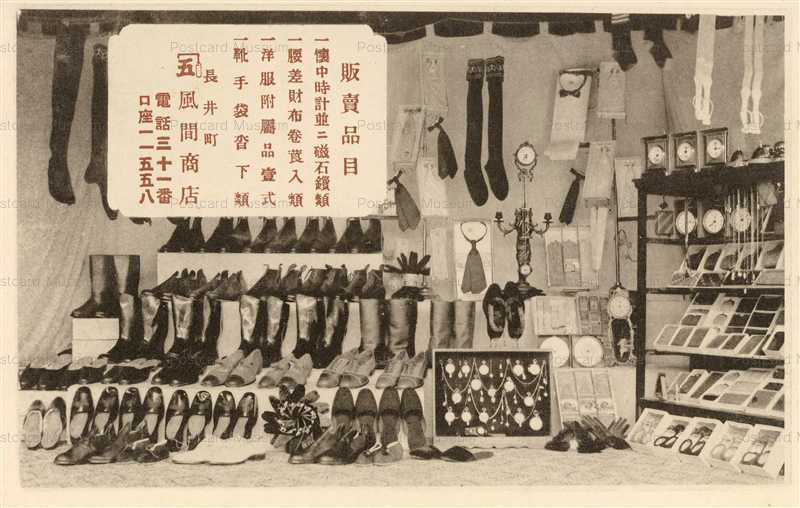 販賣品目
一懷中時計並ニ磁石鎖類
一腰差財布卷莨入類
一洋服附屬品壹式
一靴手袋沓下類
長井町
五 風間商店
電話三十一番
口座一一五五八
Postcard Museum